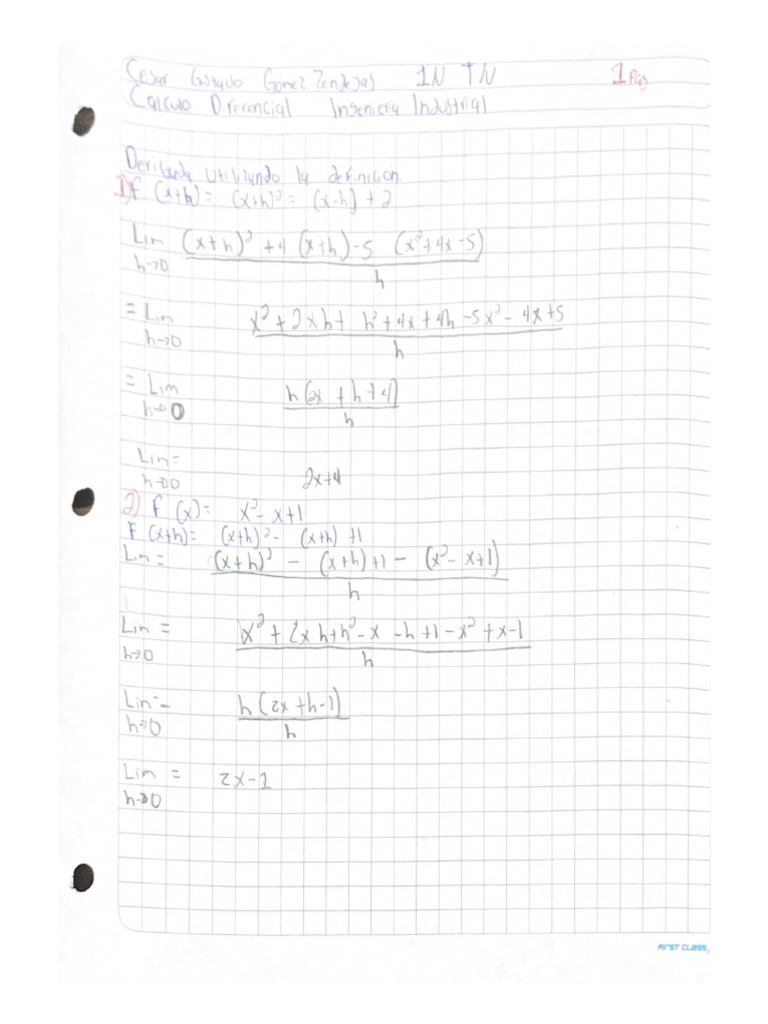 Cesar Gustavo Gomez Zendejas 1N TN 1 Pag
Calculo Diferencial Ingenieria Industrial
Deribada utilizando la definicion.
1) F (x+h) = (x+h)² = (x-h) + 2
Lim (x+h)² + 4 (x+h) - 5 (x²+4x-5)
h→0 h
= Lim x² + 2xh + h² + 4x + 4h - 5x² - 4x + 5
h→0 h
= Lim h(2x + h + 4)
h→0 h
Lim =
h→0 2x+4
2) F (x) = x² - x + 1
F (x+h) = (x+h)² - (x+h) + 1
Lim = (x+h)² - (x+h) + 1 - (x² - x + 1)
h
Lim = x² + 2xh + h² - x - h + 1 - x² + x - 1
h→0 h
Lim = h (2x + h - 1)
h→0 h
Lim = 2x - 1
h→0
FIRST CLASS